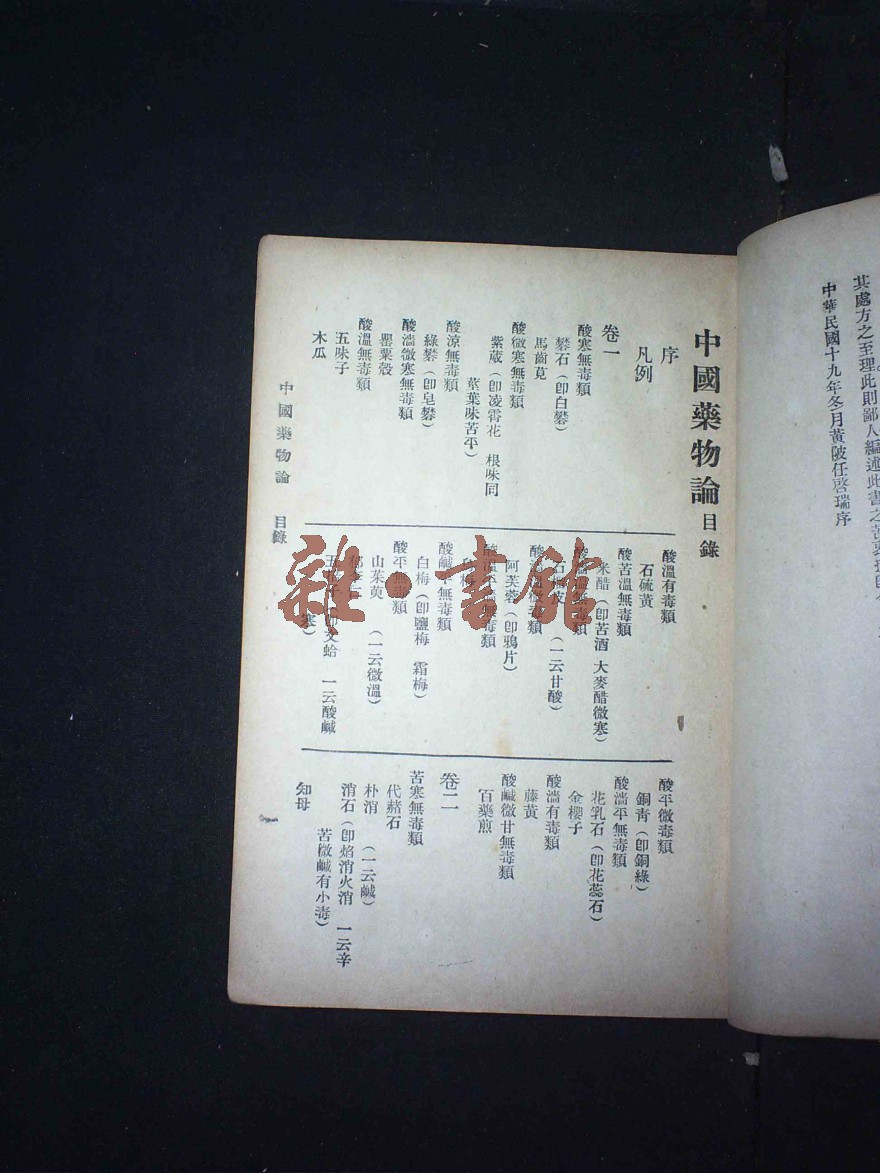 其處方之至理此則鄙人編述此書之苦衷
中華民國十九年冬月黃陂任啓瑞序
中國藥物論目錄
序
凡例
卷一
酸寒無毒類
礬石（卽白礬）
馬齒莧
酸微寒無毒類
紫葳（卽凌霄花　根味同
莖葉味苦平）
酸涼無毒類
綠礬（卽皂礬）
酸濇微寒無毒類
罌粟殼
酸溫無毒類
五味子
木瓜
酸溫有毒類
石硫黃
酸苦溫無毒類
米醋（卽苦酒 大麥醋微寒）
酸濇溫無毒類
石榴皮（一云甘酸）
微毒類
阿芙蓉（卽鴉片）
無毒類
梅
酸鹹平無毒類
白梅（卽鹽梅　霜梅）
酸平無毒類
山茱萸（一云微溫）
五倍子（卽文蛤　一云酸鹹
寒）
酸平微毒類
銅青（卽銅綠）
酸濇平無毒類
花乳石（卽花蕊石）
金櫻子
酸濇有毒類
藤黃
酸鹹微甘無毒類
百藥煎
卷二
苦寒無毒類
代赭石
朴消（一云鹹）
消石（卽焰消火消　一云辛
苦微鹹有小毒）
知母
中國藥物論　目錄
雜·書館